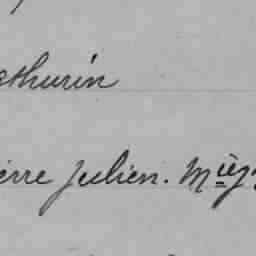 athurin
ierre Julien. M